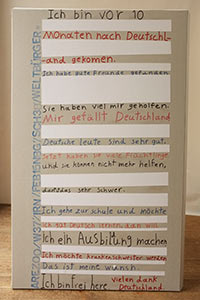 Ich bin vor 10
Monaten nach Deutschl-
and gekomen.
Ich habe gute Freunde gefunden
Sie haben viel mir geholfen.
Mir gefällt Deutschland
Deutsche leute sind sehr gut.
Jetzt haben sie viele Flüchtlinge
und sie können nicht mehr helfen,
dass das sehr schwer.
Ich gehe zur schule und möchte
gut Deutsch lernen, dann will
Ich eih Ausbildung machen
Ich möchte krankenschwester werden
Das ist meine wunsh
Ich bin frei here vielen dank
Deutschland